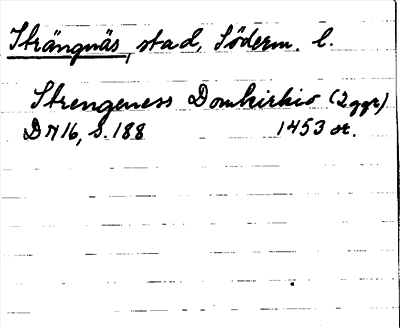 Strängnäs, stad, Söderm. l.
Strengeness Domkirkio (2 ggr)
DN 16, S. 188 1453 or.